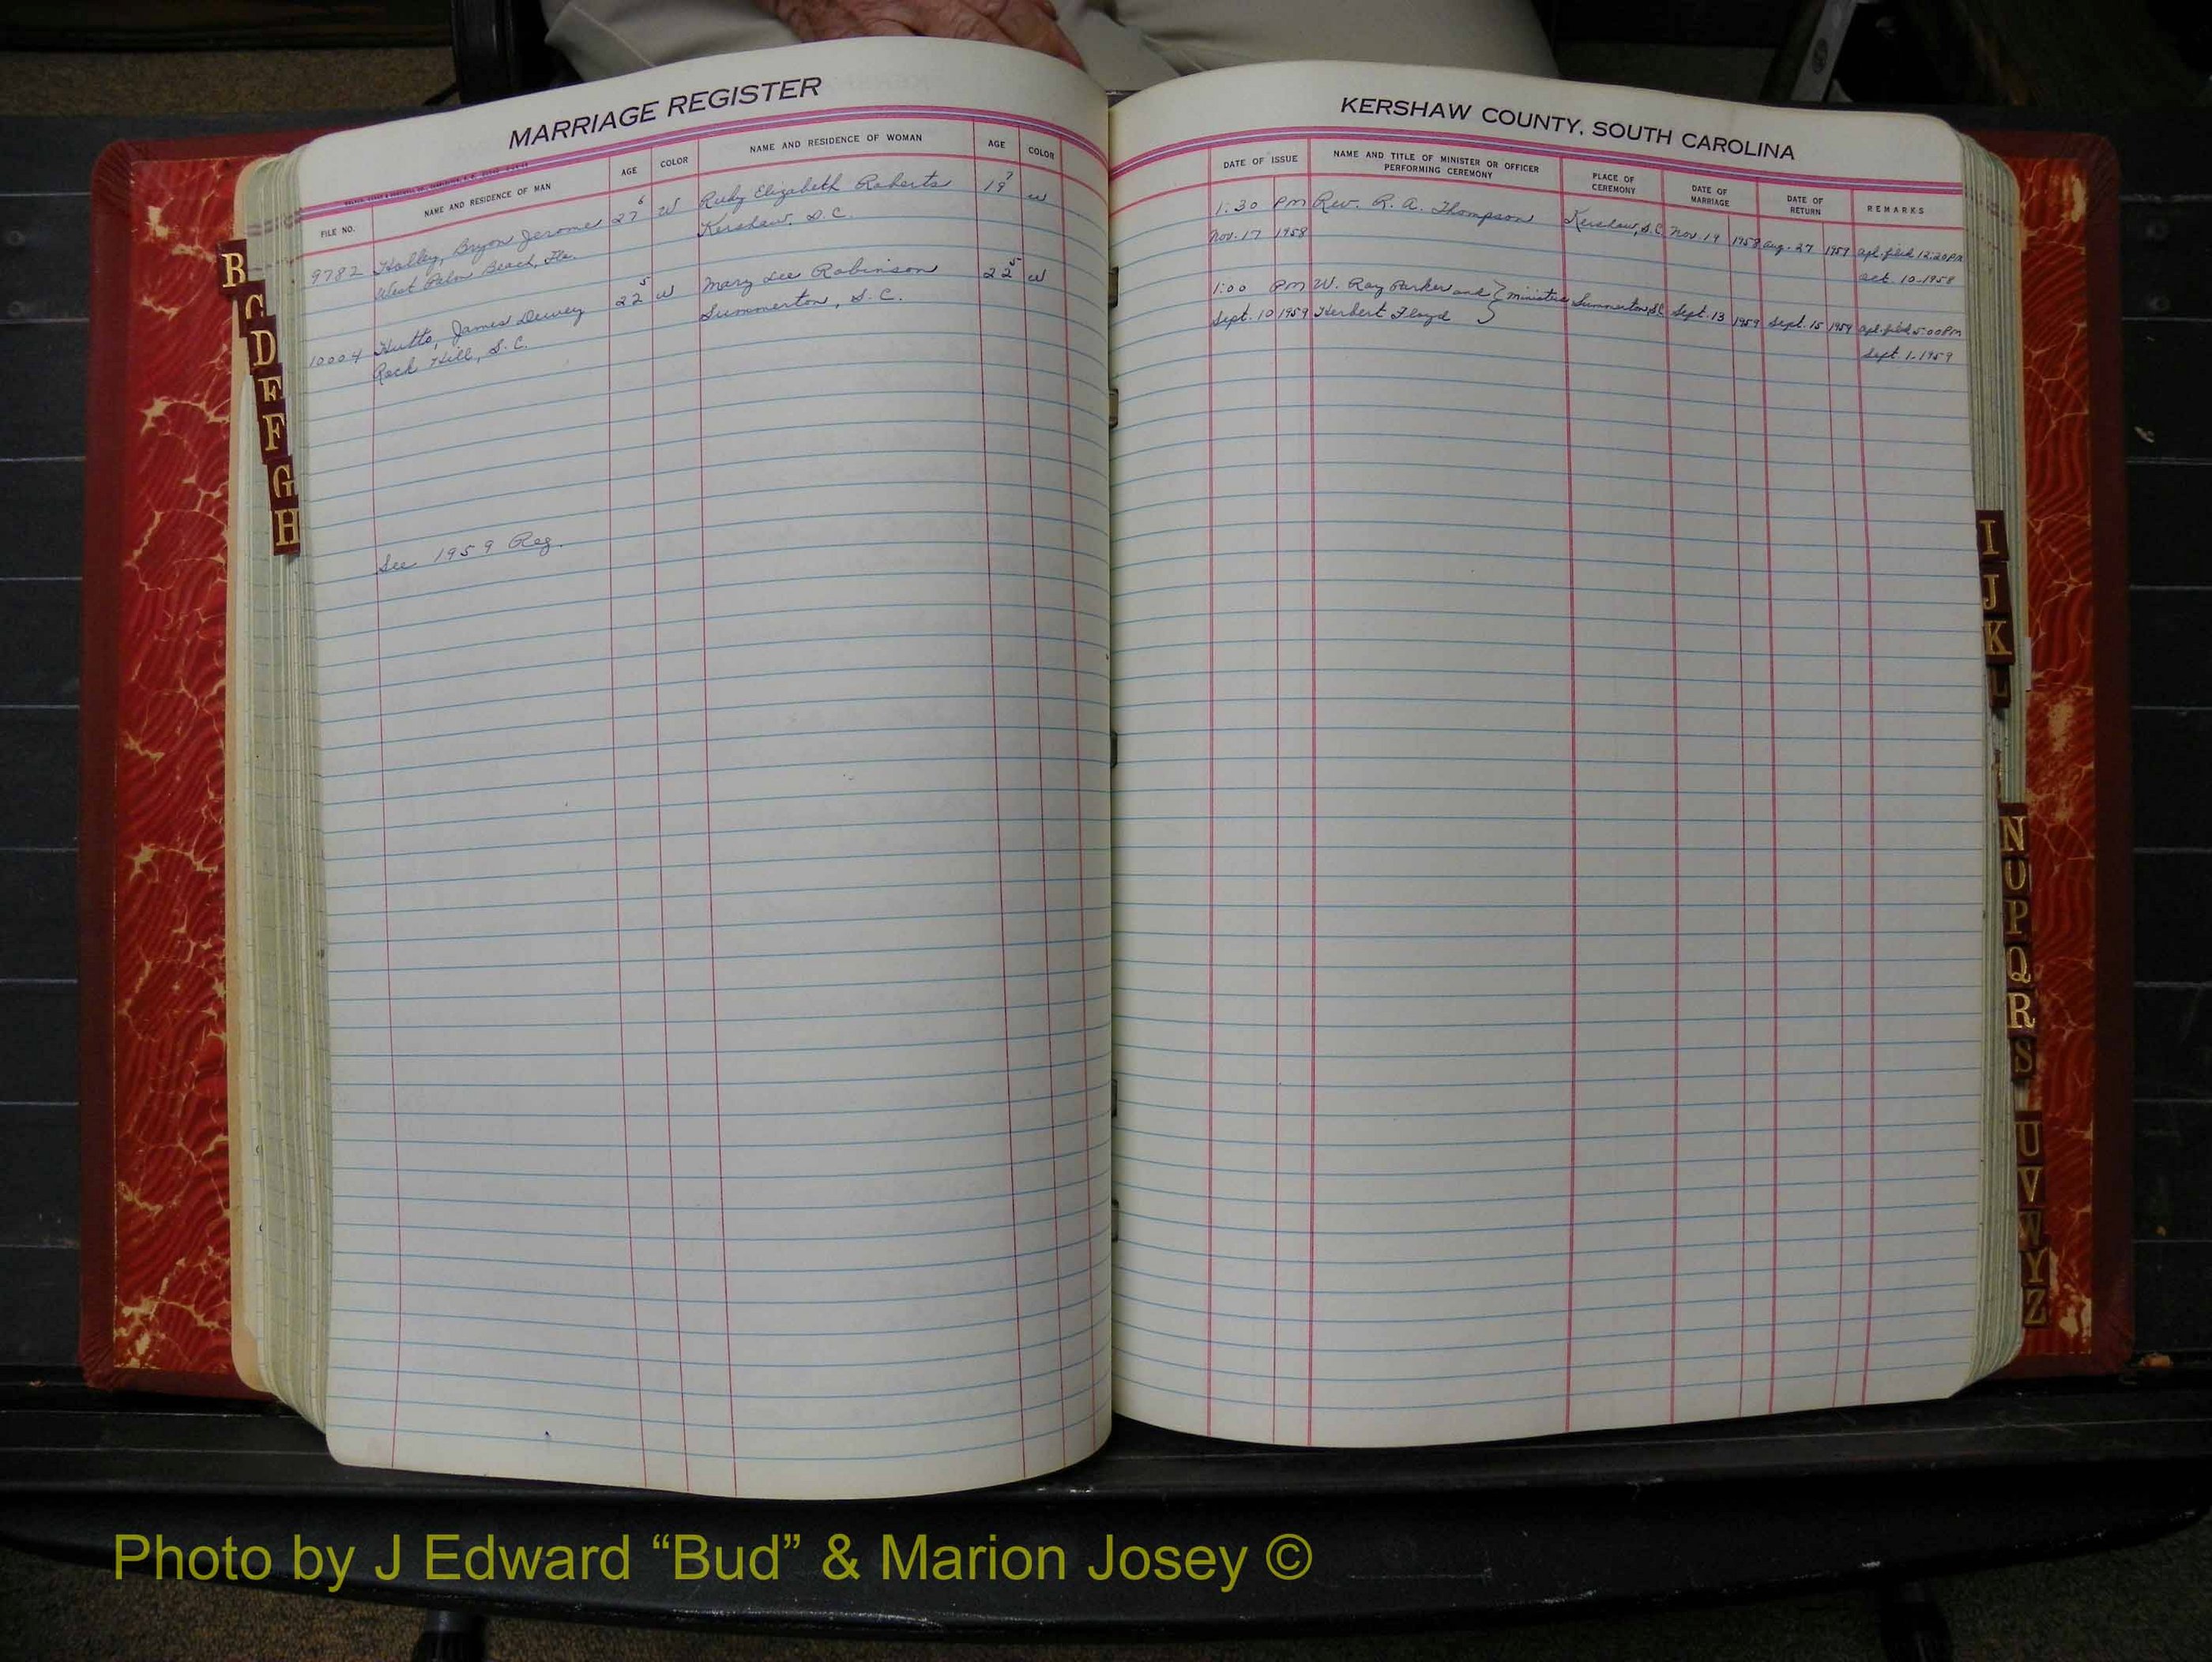 MARRIAGE REGISTER
FILE NO. NAME AND RESIDENCE OF MAN AGE COLOR NAME AND RESIDENCE OF WOMAN AGE COLOR
9782 Holley, Bryon Jerome 27 6 W Ruby Elizabeth Roberts 19 7 W
West Palm Beach, Fla. Kershaw, S.C.
10004 Hutto, James Dewey 22 5 W Mary Lee Robinson 22 5 W
Rock Hill, S.C. Summerton, S.C.
See 1959 Reg.
KERSHAW COUNTY, SOUTH CAROLINA
DATE OF ISSUE NAME AND TITLE OF MINISTER OR OFFICER PERFORMING CEREMONY PLACE OF CEREMONY DATE OF MARRIAGE DATE OF RETURN REMARKS
1:30 PM Rev. R. A. Thompson Kershaw, S.C. Nov. 19 1958 Aug. 27 1959 apl. filed 12:20 PM
Nov. 17 1958 Oct. 10-1958
1:00 PM W. Ray Parker and } ministers Summerton, S.C. Sept. 13 1959 Sept. 15 1959 apl. filed 5:00 PM
Sept. 10 1959 Herbert Floyd Sept. 1-1959
B
C
D
E
F
G
H
I
J
K
L
N
O
P
Q
R
S
U
V
W
Y
Z
Photo by J Edward “Bud” & Marion Josey ©